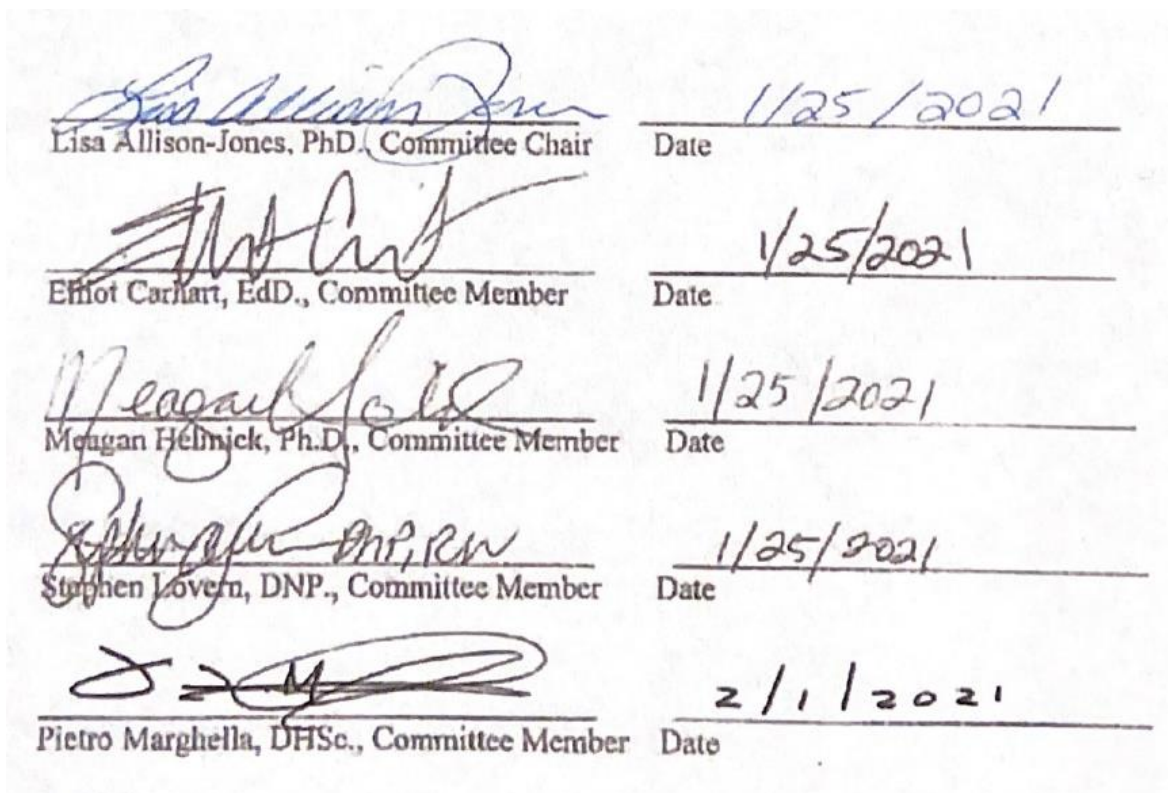 Lisa Allison Jones 1/25/2021
Lisa Allison-Jones, PhD., Committee Chair Date
1/25/2021
Elliot Carhart, EdD., Committee Member Date
Meagan 1/25/2021
Meagan Helmick, Ph.D., Committee Member Date
DNP, RN 1/25/2021
Stephen Lovern, DNP., Committee Member Date
2/1/2021
Pietro Marghella, DHSc., Committee Member Date